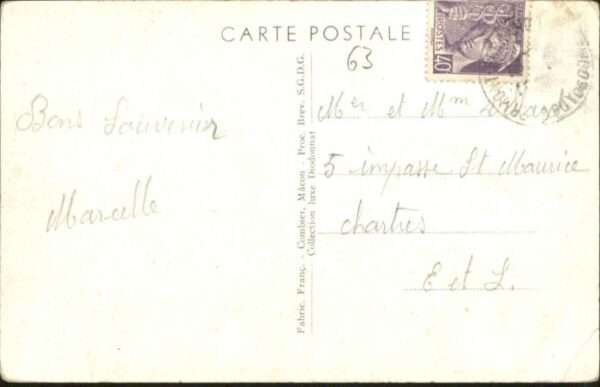 CARTE POSTALE
63
Bons Souvenir
Marcelle
Fabric. Franç. - Combier, Mâcon - Proc. Brev. S.G.D.G.
Collection luxe Diodonnat
POSTES 40
Mer et Mm
5 impasse St Maurice
Chartres
E et L.